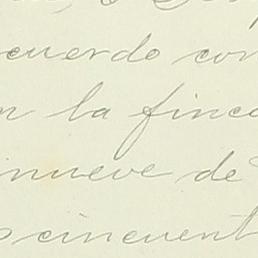 cuerdo con
n la finca
inueve de
cincuent